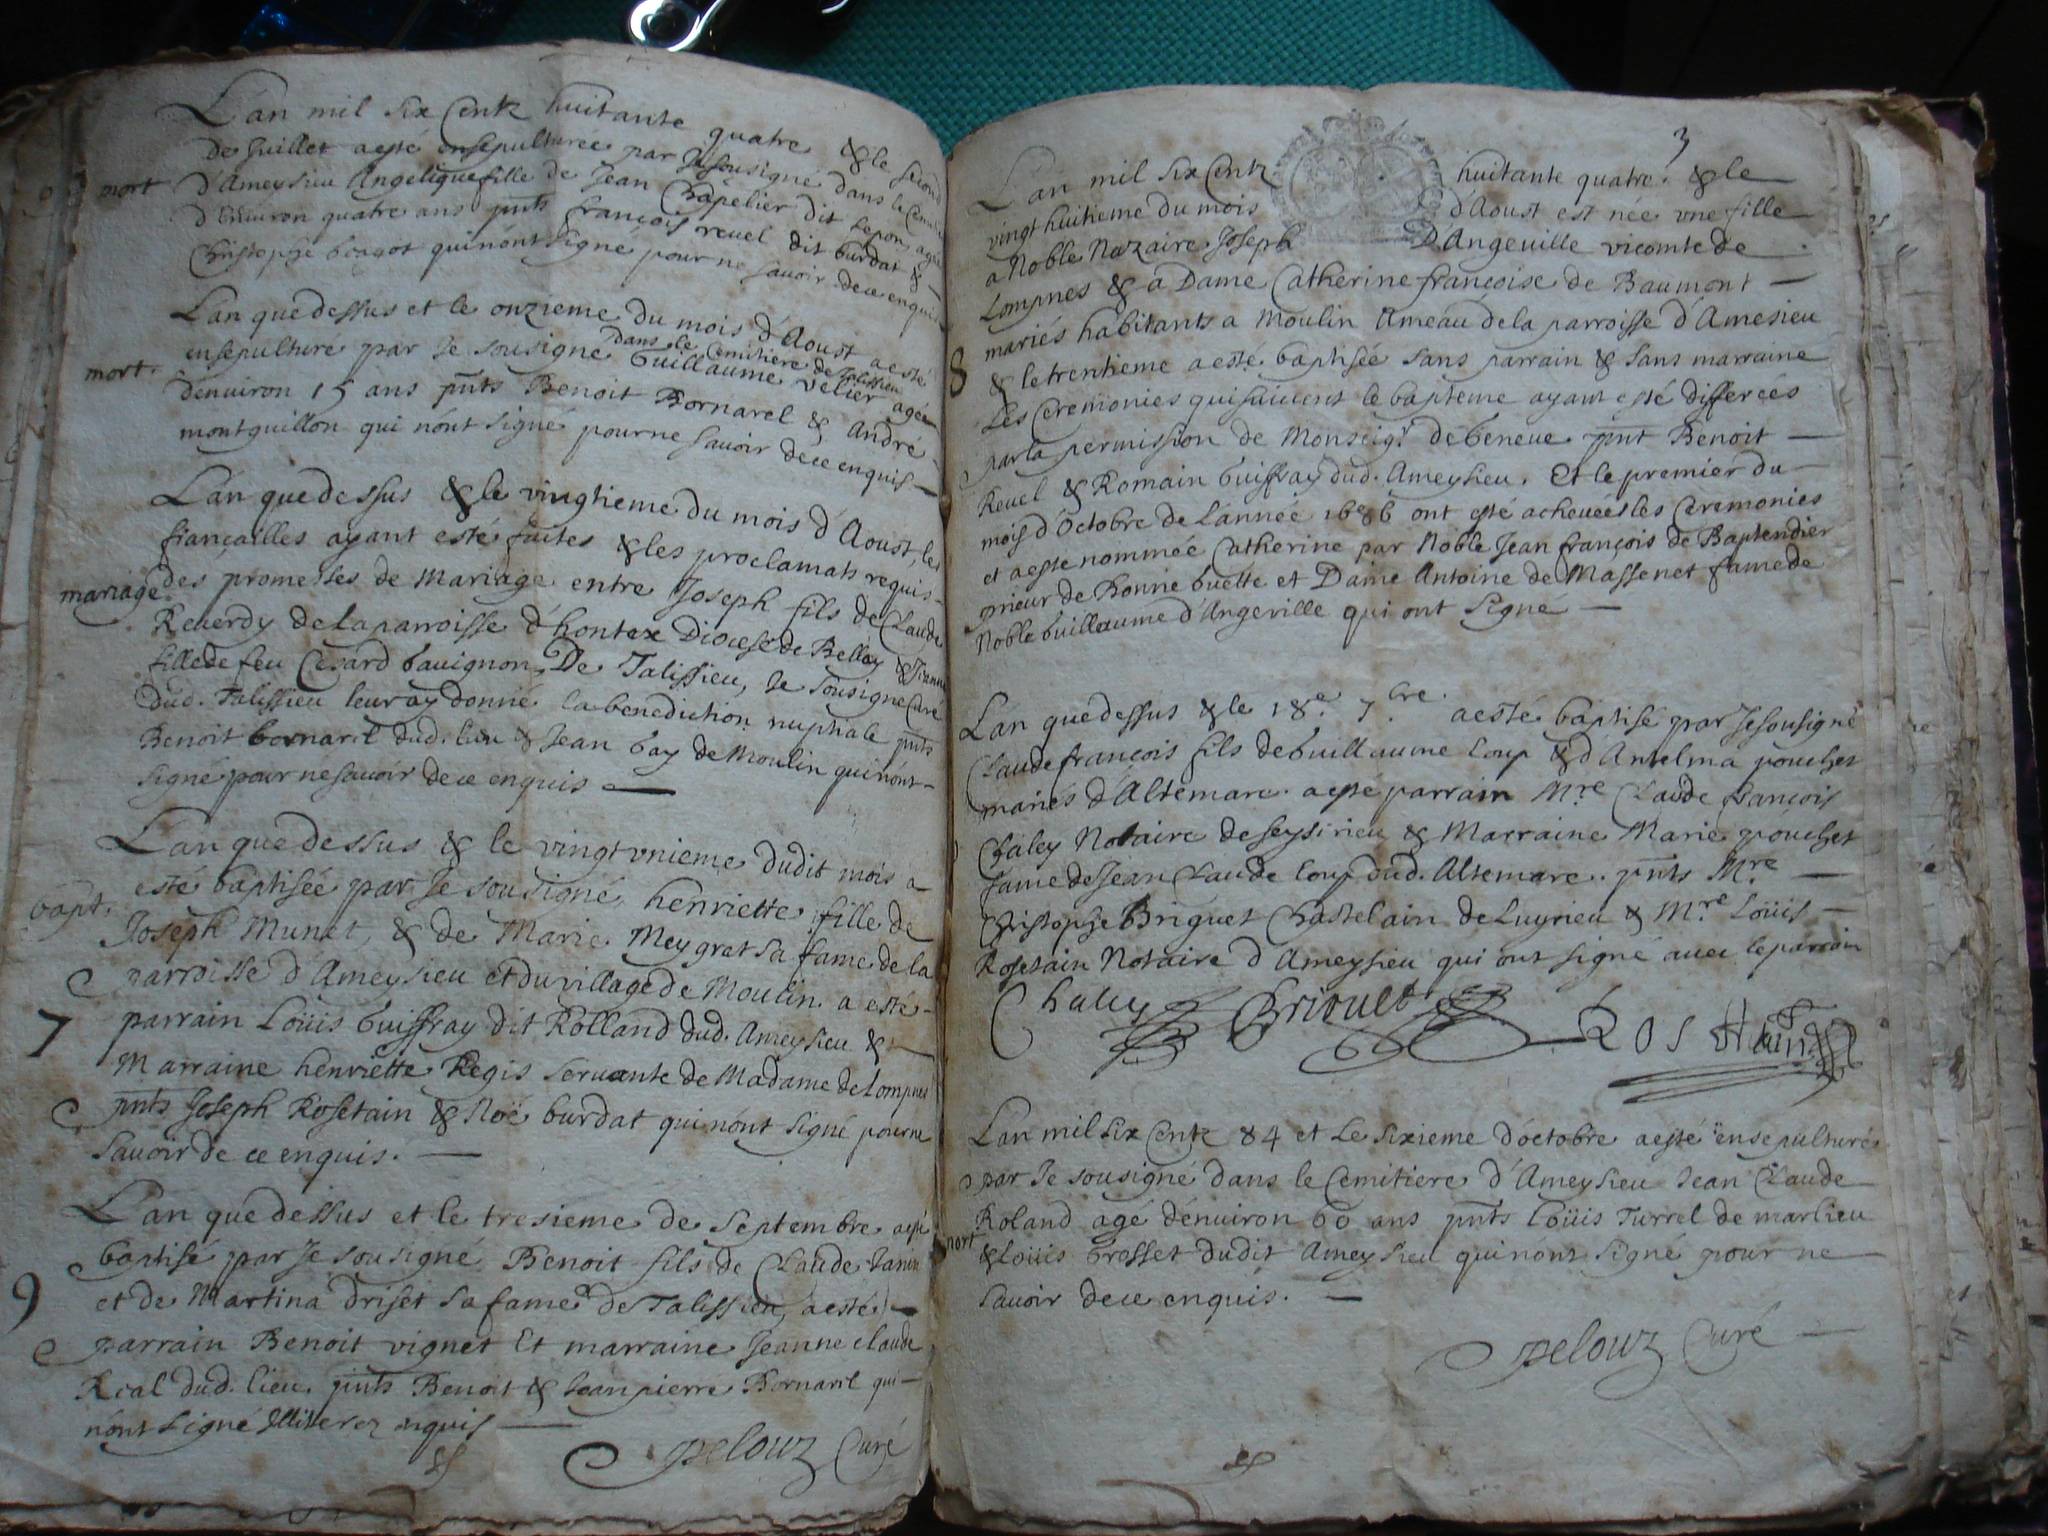 L'an mil six Centz huitante quatre & le second
de Juillet a esté ensepulturée par Je sousigné dans le Cemit
mort
d'Ameysieu Angelique fille de Jean Chapelier dit Lepon, agée
d'environ quatre ans pnts françois revel dit burdat &
Christophe qui n'ont signé pour ne savoir de ce enquis
L'an que dessus et le onzieme du mois d'Aoust a esté
dans le Cemitiere de Talissieu
ensepulturé par Je sousigné Guillaume velier agé
mort.
d'environ 15 ans pnts Benoit Bornarel & André
montguillon qui n'ont signé pour ne savoir de ce enquis
L'an que dessus & le vingtieme du mois d'Aoust, les
fiançailles ayant esté faites & les proclamats requis
mariage
des promesses de Mariage entre Joseph fils de Claude
Reverdy de la parroisse d'hontex Diocese de Belley &
fille de feu Cesard Gavignon De Talissieu, Je sousigné Curé
dud. Talissieu leur ay donné la benediction nuptiale pnts
Benoit bornaril dud. lieu & Jean Gay de Moulin qui n'ont
signé pour ne savoir de ce enquis
L'an que dessus & le vingt unieme dudit mois a
esté baptisée par Je sousigné henriette fille de
bapt.
Joseph Munet, & de Marie Meygrat sa fame de la
parroisse d'Ameysieu et du village de Moulin a esté
7
parrain Loüis Guiffray dit Rolland dud. Ameysieu &
Marraine henriette Regis servante de Madame de Lompnes
pnts Joseph Rosetain & Noë burdat qui n'ont signé pour ne
savoir de ce enquis.
L'an que dessus et le tresieme de Septembre a esté
baptisé par Je sousigné Benoit fils de Claude Janin
9
et de Martina driset sa fame de Talissieu, a esté
parrain Benoit vignet Et marraine Jeanne claude
Real dud. lieu. pnts Benoit & Jean pierre Bornaril qui
n'ont signé Illiterez enquis
Pelouz Curé
3
L'an mil six Centz huitante quatre. & le
vingt huitieme du mois d'Aoust est née une fille
a Noble Nazaire Joseph D'Angeville vicomte de
Lompnes & a Dame Catherine françoise de Baumont
mariés habitants a Moulin Ameau de la parroisse d'Amesieu
8
& le trentieme a esté baptisée sans parrain & sans marraine
Les Ceremonies qui suivent le bapteme ayant esté differées
par la permission de Monseigr de Geneve pnt Benoit
Revel & Romain Guiffray dud. Ameysieu. Et le premier du
mois d'Octobre de L'année 1686 ont esté achevées les Ceremonies
et a esté nommée Catherine par Noble Jean françois de Baptendier
prieur de Bonne Guette et Dame Antoine de Massenet fame de
Noble Guillaume d'Angeville qui ont signé
L'an que dessus & le 18e. 7bre. a esté baptisé par Je sousigné
Claude françois fils de Guillaume Loup & d'Antelma pouchet
mariés d'Altemare. a esté parrain Mre Claude françois
Chaley Notaire de seysirieu & Marraine Marie pouchet
fame de Jean Claude Loup dud. Altemare. pnts Mre
Christophe Briguet Chastelain de Luyrieu & Mre Loüis
Rosetain Notaire d'Ameysieu qui ont signé avec le parrain
Chaley Rostain
L'an mil six Centz 84 et Le sixieme d'octobre a esté ensepulturé
par Je sousigné dans le Cemitiere d'Ameysieu Jean Claude
Roland agé d'environ 60 ans pnts Loüis Turrel de marlieu
mort
& Loüis brosset dudit Ameysieu qui n'ont signé pour ne
savoir de ce enquis.
Pelouz Curé